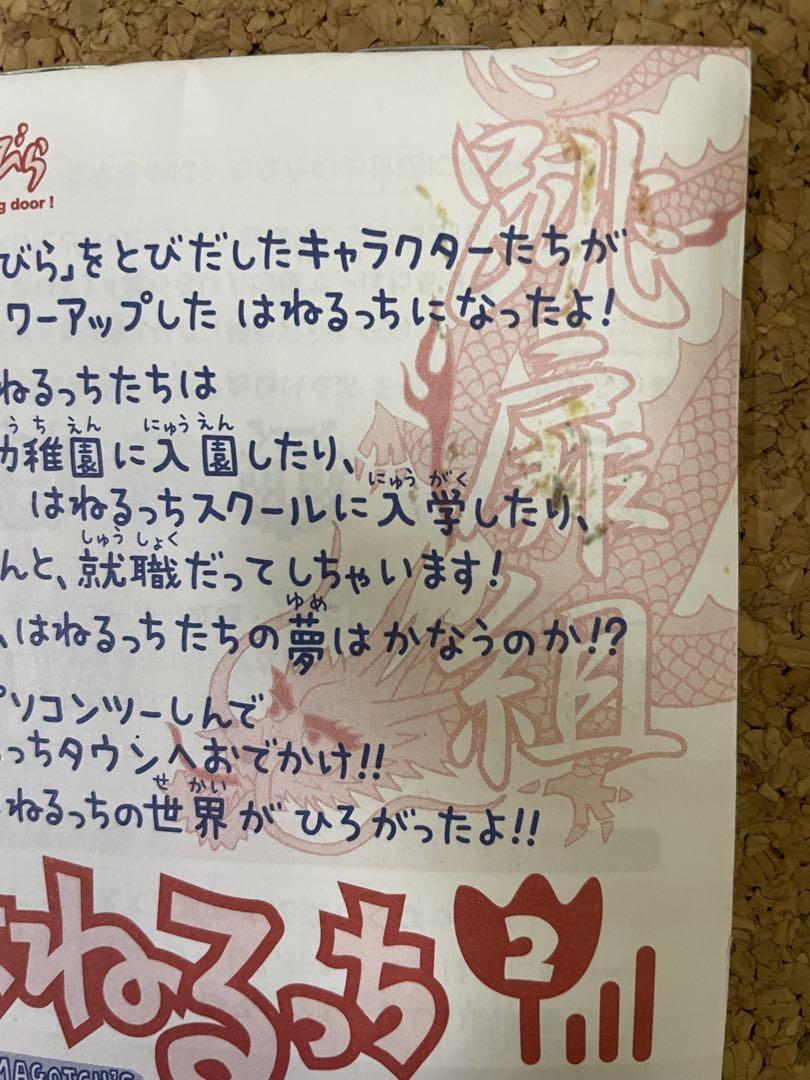 びら
g door!
びら」をとびだしたキャラクターたちが
ワーアップした はねるっちになったよ!
ねるっちたちは
うちえん にゅうえん
幼稚園に入園したり、
にゅうがく
はねるっちスクールに入学したり、
しゅうしょく
んと、就職だってしちゃいます!
ゆめ
、はねるっちたちの夢はかなうのか!?
パソコンツーしんで
っちタウンへおでかけ!!
せかい
はねるっちの世界がひろがったよ!!
跳扉組
はねるっち
2
MAGOTCHI'S